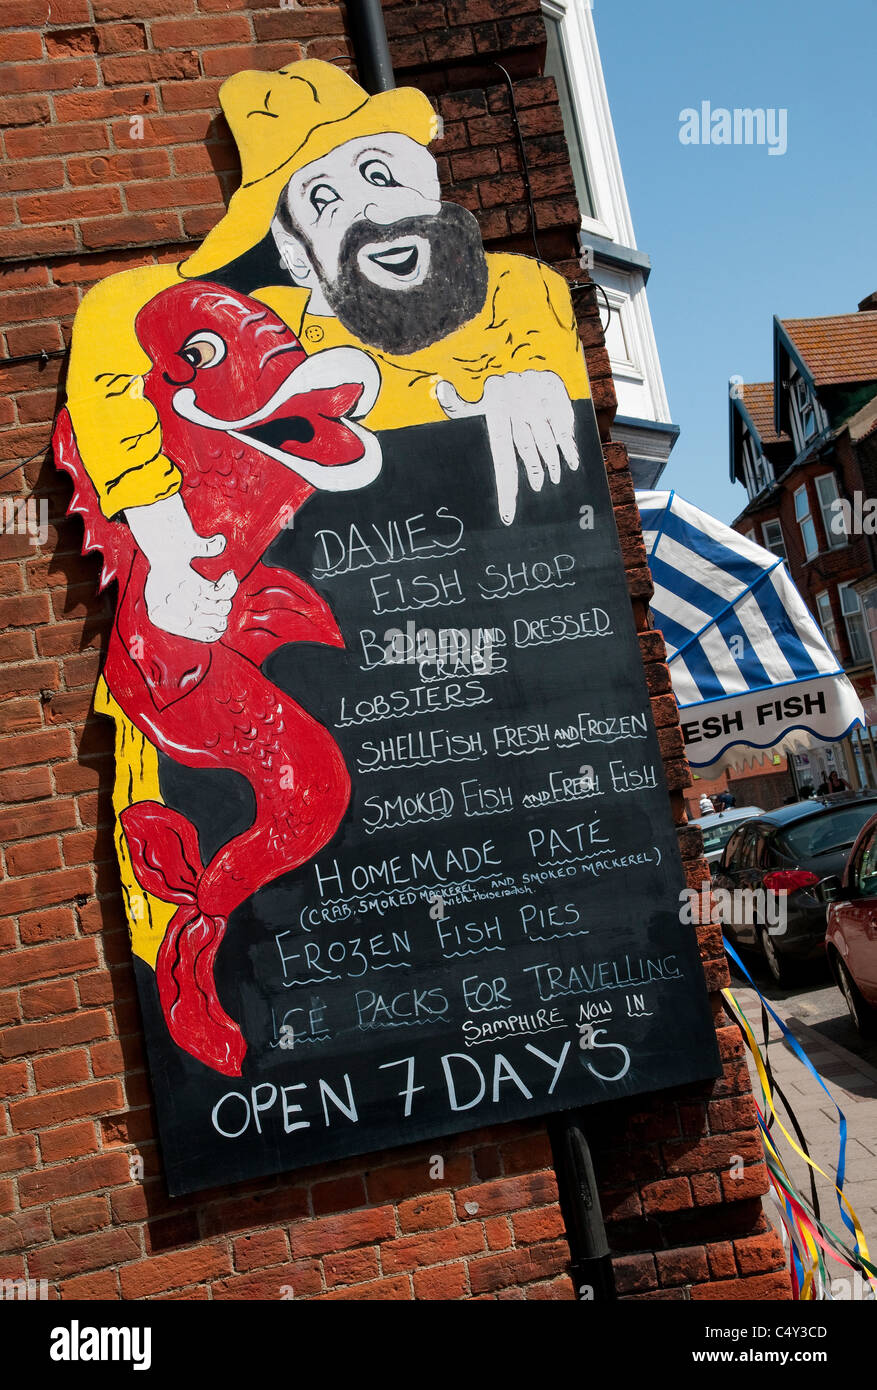 DAVIES
FISH SHOP
BOILED AND DRESSED
CRABS
LOBSTERS
SHELLFISH, FRESH AND FROZEN
SMOKED FISH AND FRESH FISH
HOMEMADE PATÉ
(CRAB, SMOKED MACKEREL AND SMOKED MACKEREL)
with Horseradish.
FROZEN FISH PIES
ICE PACKS FOR TRAVELLING
SAMPHIRE NOW IN
OPEN 7 DAYS
ESH FISH
alamy
alamy
Image ID: C4Y3CD
www.alamy.com